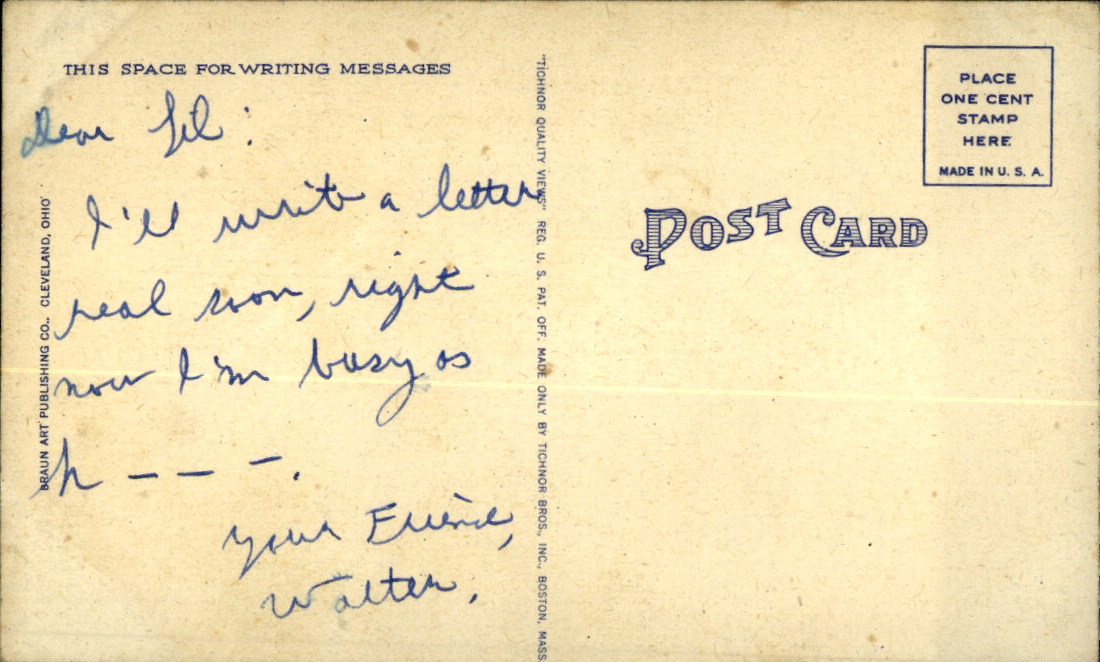 THIS SPACE FOR WRITING MESSAGES
Dear Lil:
I'll write a letter
real soon, right
now I'm busy as
h - - - .
Your Friend,
Walter.
BRAUN ART PUBLISHING CO., CLEVELAND, OHIO
"TICHNOR QUALITY VIEWS" REG. U. S. PAT. OFF. MADE ONLY BY TICHNOR BROS., INC., BOSTON, MASS
POST CARD
PLACE
ONE CENT
STAMP
HERE
MADE IN U. S. A.